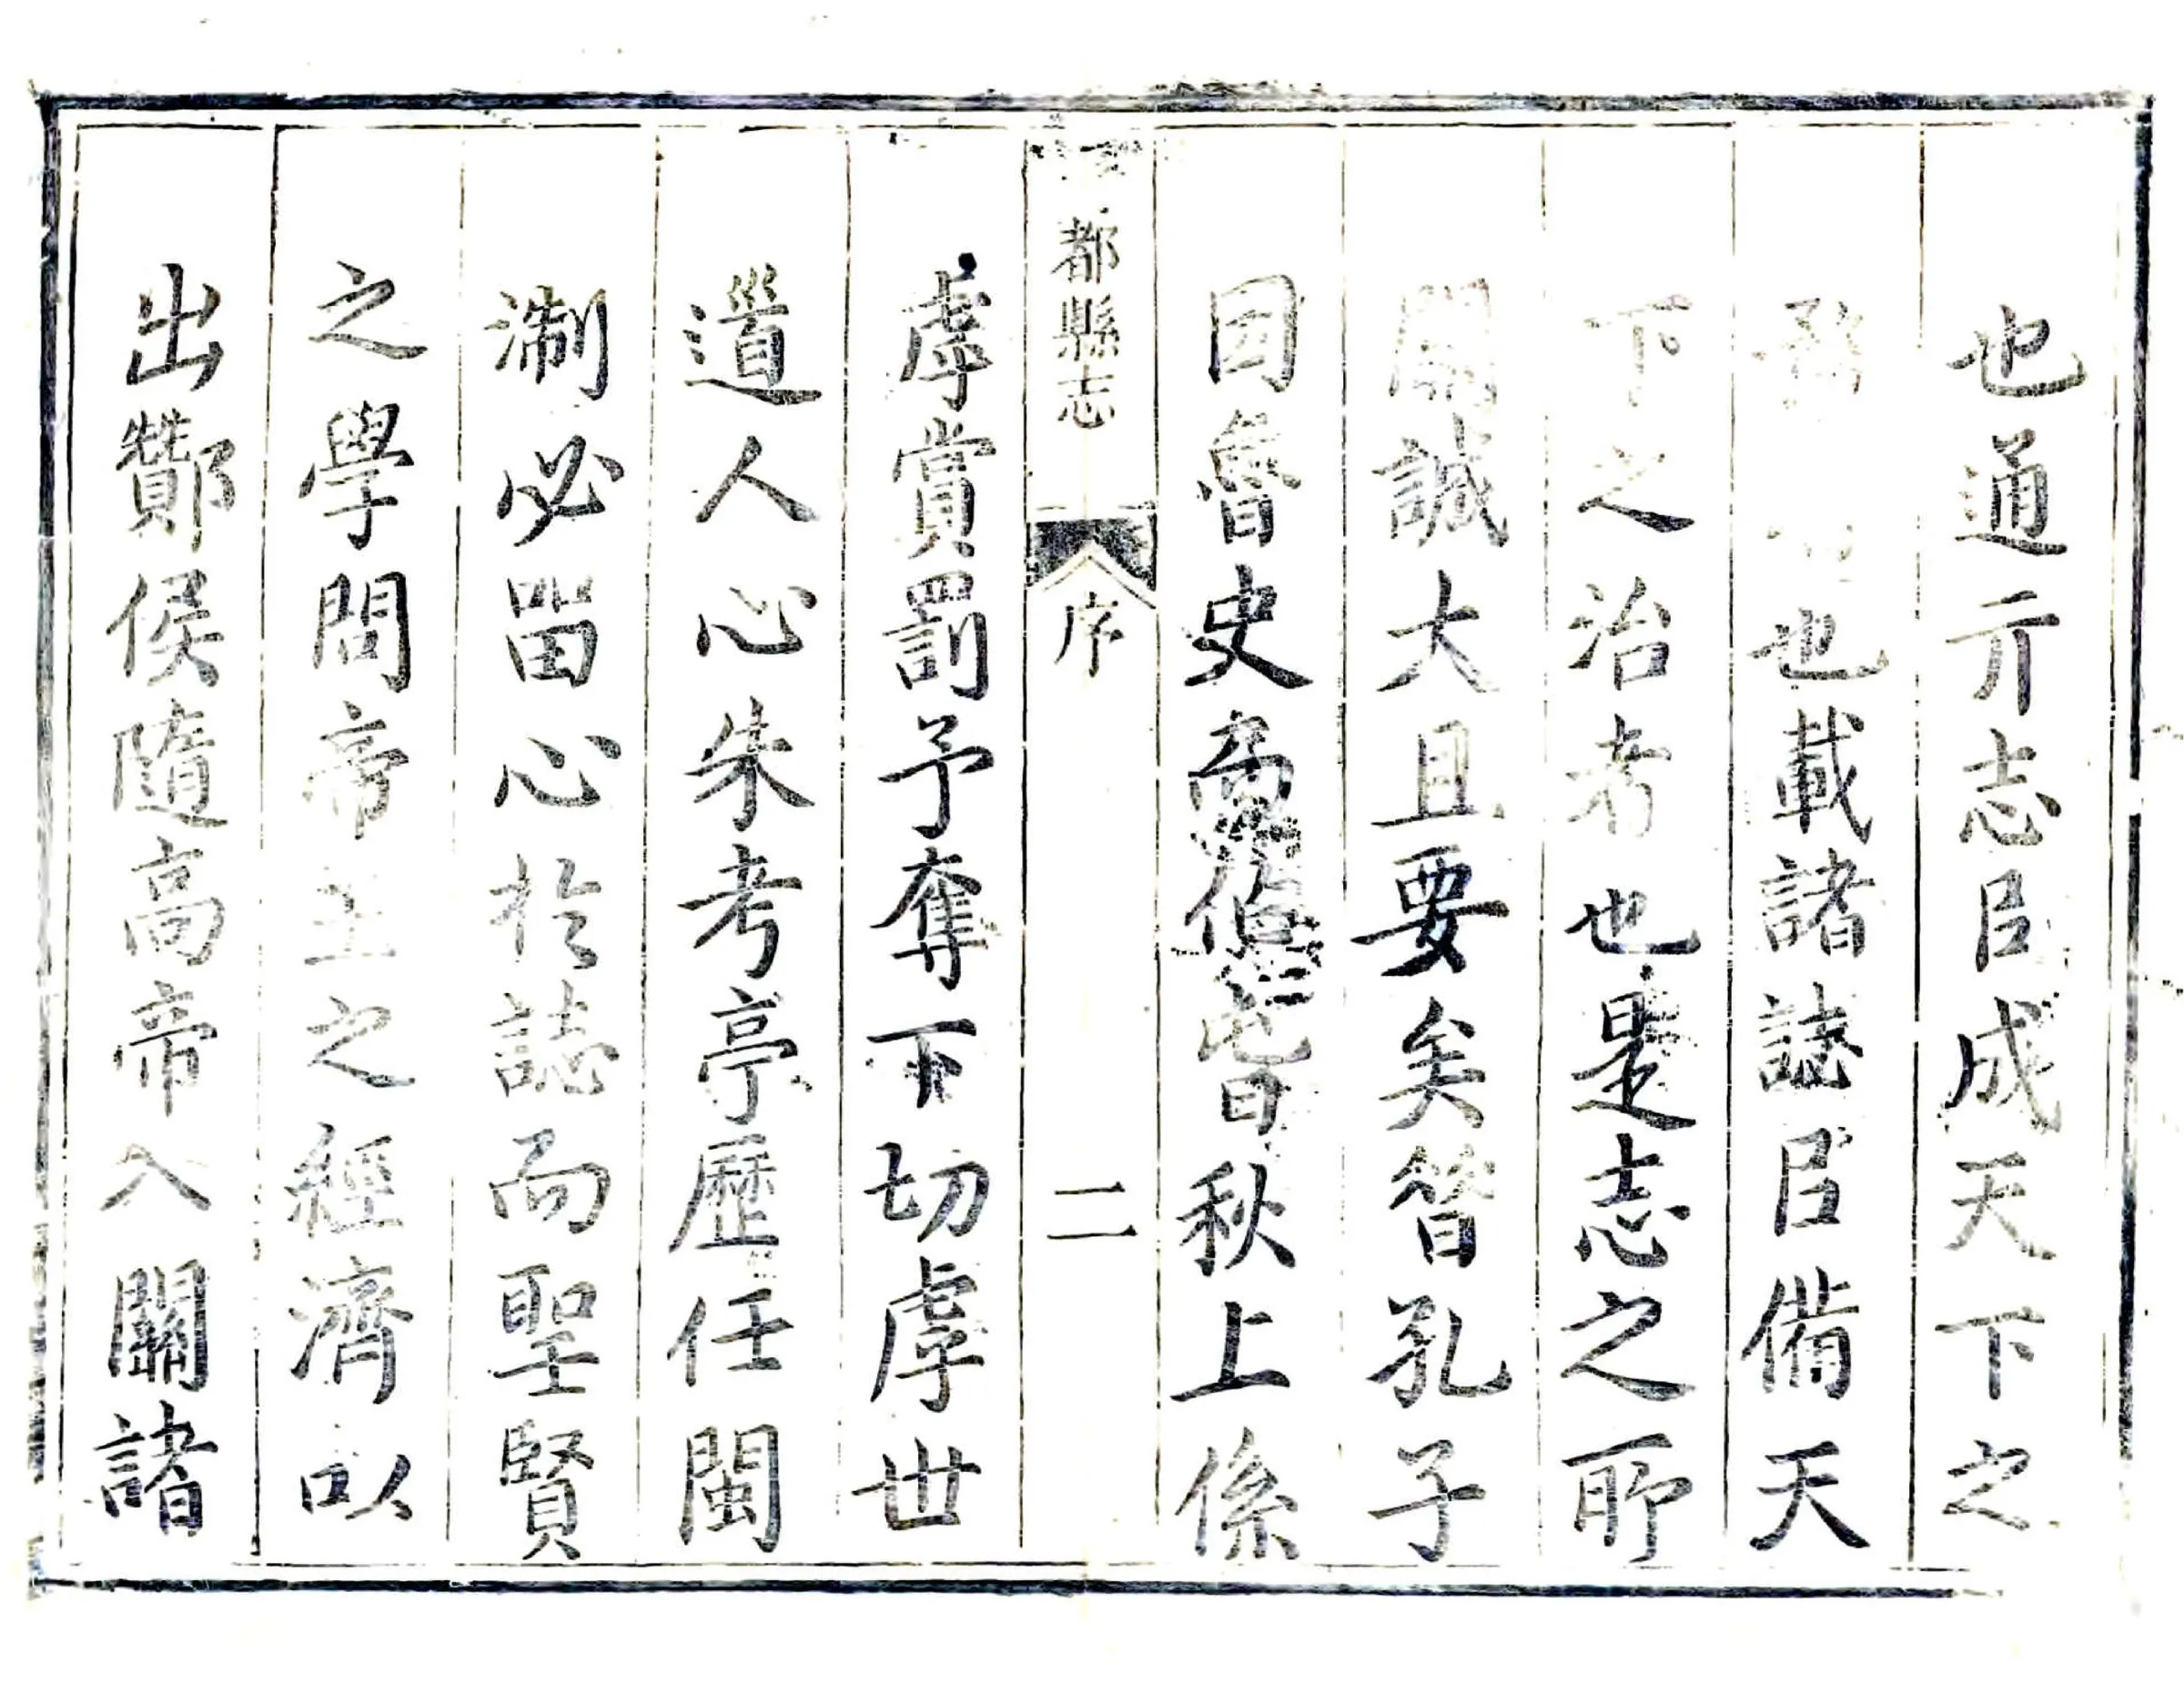 也通亓志㠯成天下之
務也載諸誌㠯備天
下之治者也是志之所
關誠大且要矣㫺孔子
因魯史而修旾秋上係
都縣志 序 二
虖賞罰予奪下切虖世
道人心朱考亭歷任閩
淛必畱心於誌而聖賢
之學問帝王之經濟以
出酇侯隨高帝入關諸